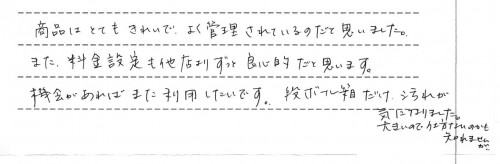 商品はとてもきれいで、よく管理されているのだと思いました。
また、料金設定も他店よりずっと良心的だと思います。
機会があればまた利用したいです。段ボール箱だけ、汚れが
気になりました。
大きいので仕方ないのかも
知れませんが。